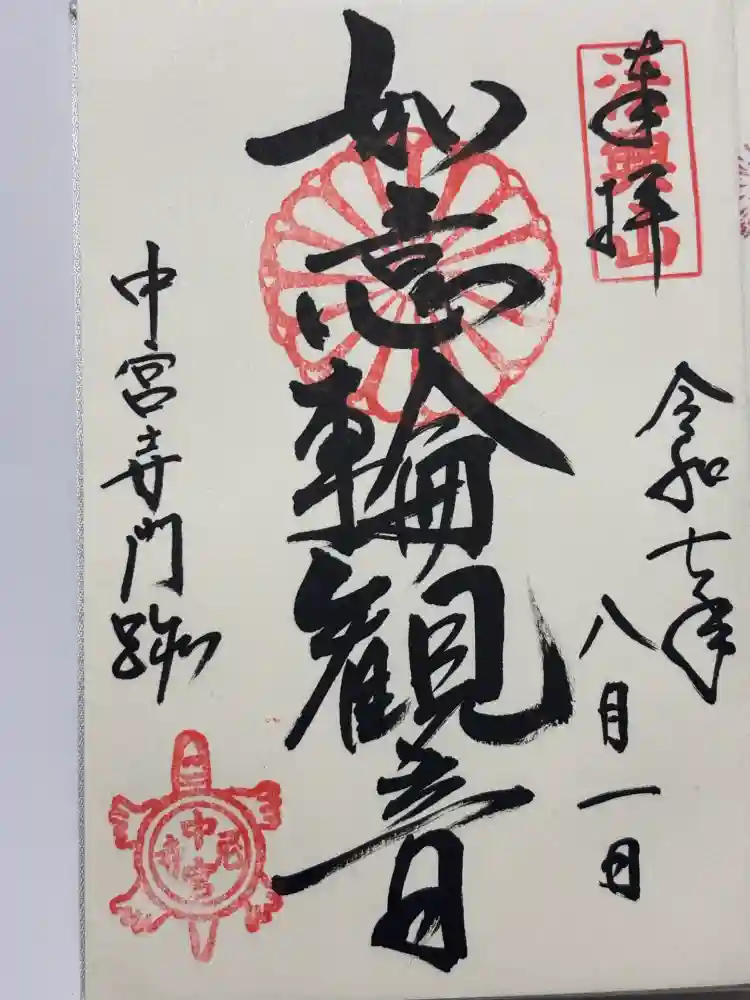 奉拝
法興山
令和七年
八月一日
如意輪観音
中宮寺門跡
中宮尼寺